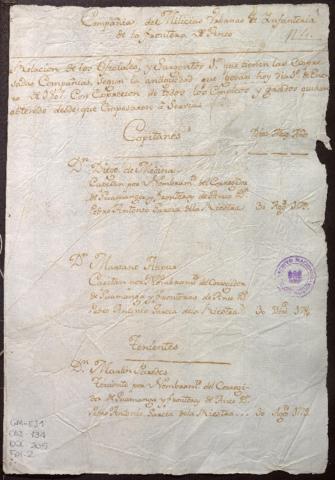 Compañia del Milicias Urbanas de Infanteria
de la frontera de Anco
N 4.
Relacion de los Oficiales, y Sargentos que tienen las expre
sadas Compañias, segun la antiguedad que gozan hoy dia 1º de Ene
ro de 1787 Con expresion de todos los Empleos y grados que han
obtenido desde que empesaron a Servir
Capitanes Dias Mes Años
Dn Diego de Medina
Capitan por Nombramto del Corregidor
de Guamanga y frontera de Anco Dn
Pedro Antonio Garcia de la Riestra 30 Agto 1778
Dn Mariano
Capitan por Nombramto del Corregidor
de Guamanga y fronteras de Anco Dn
Pedro Antonio Garcia de la Riestra 30 1778
Tenientes
Dn Martin Paredes
Teniente por Nombramto del Corregi
dor de Guamanga y frontera de Anco Dn
Pedro Antonio Garcia de la Riestra 30 Agto 1778
GM-EJ1
CAJ-134
DOC 205
Fol-2